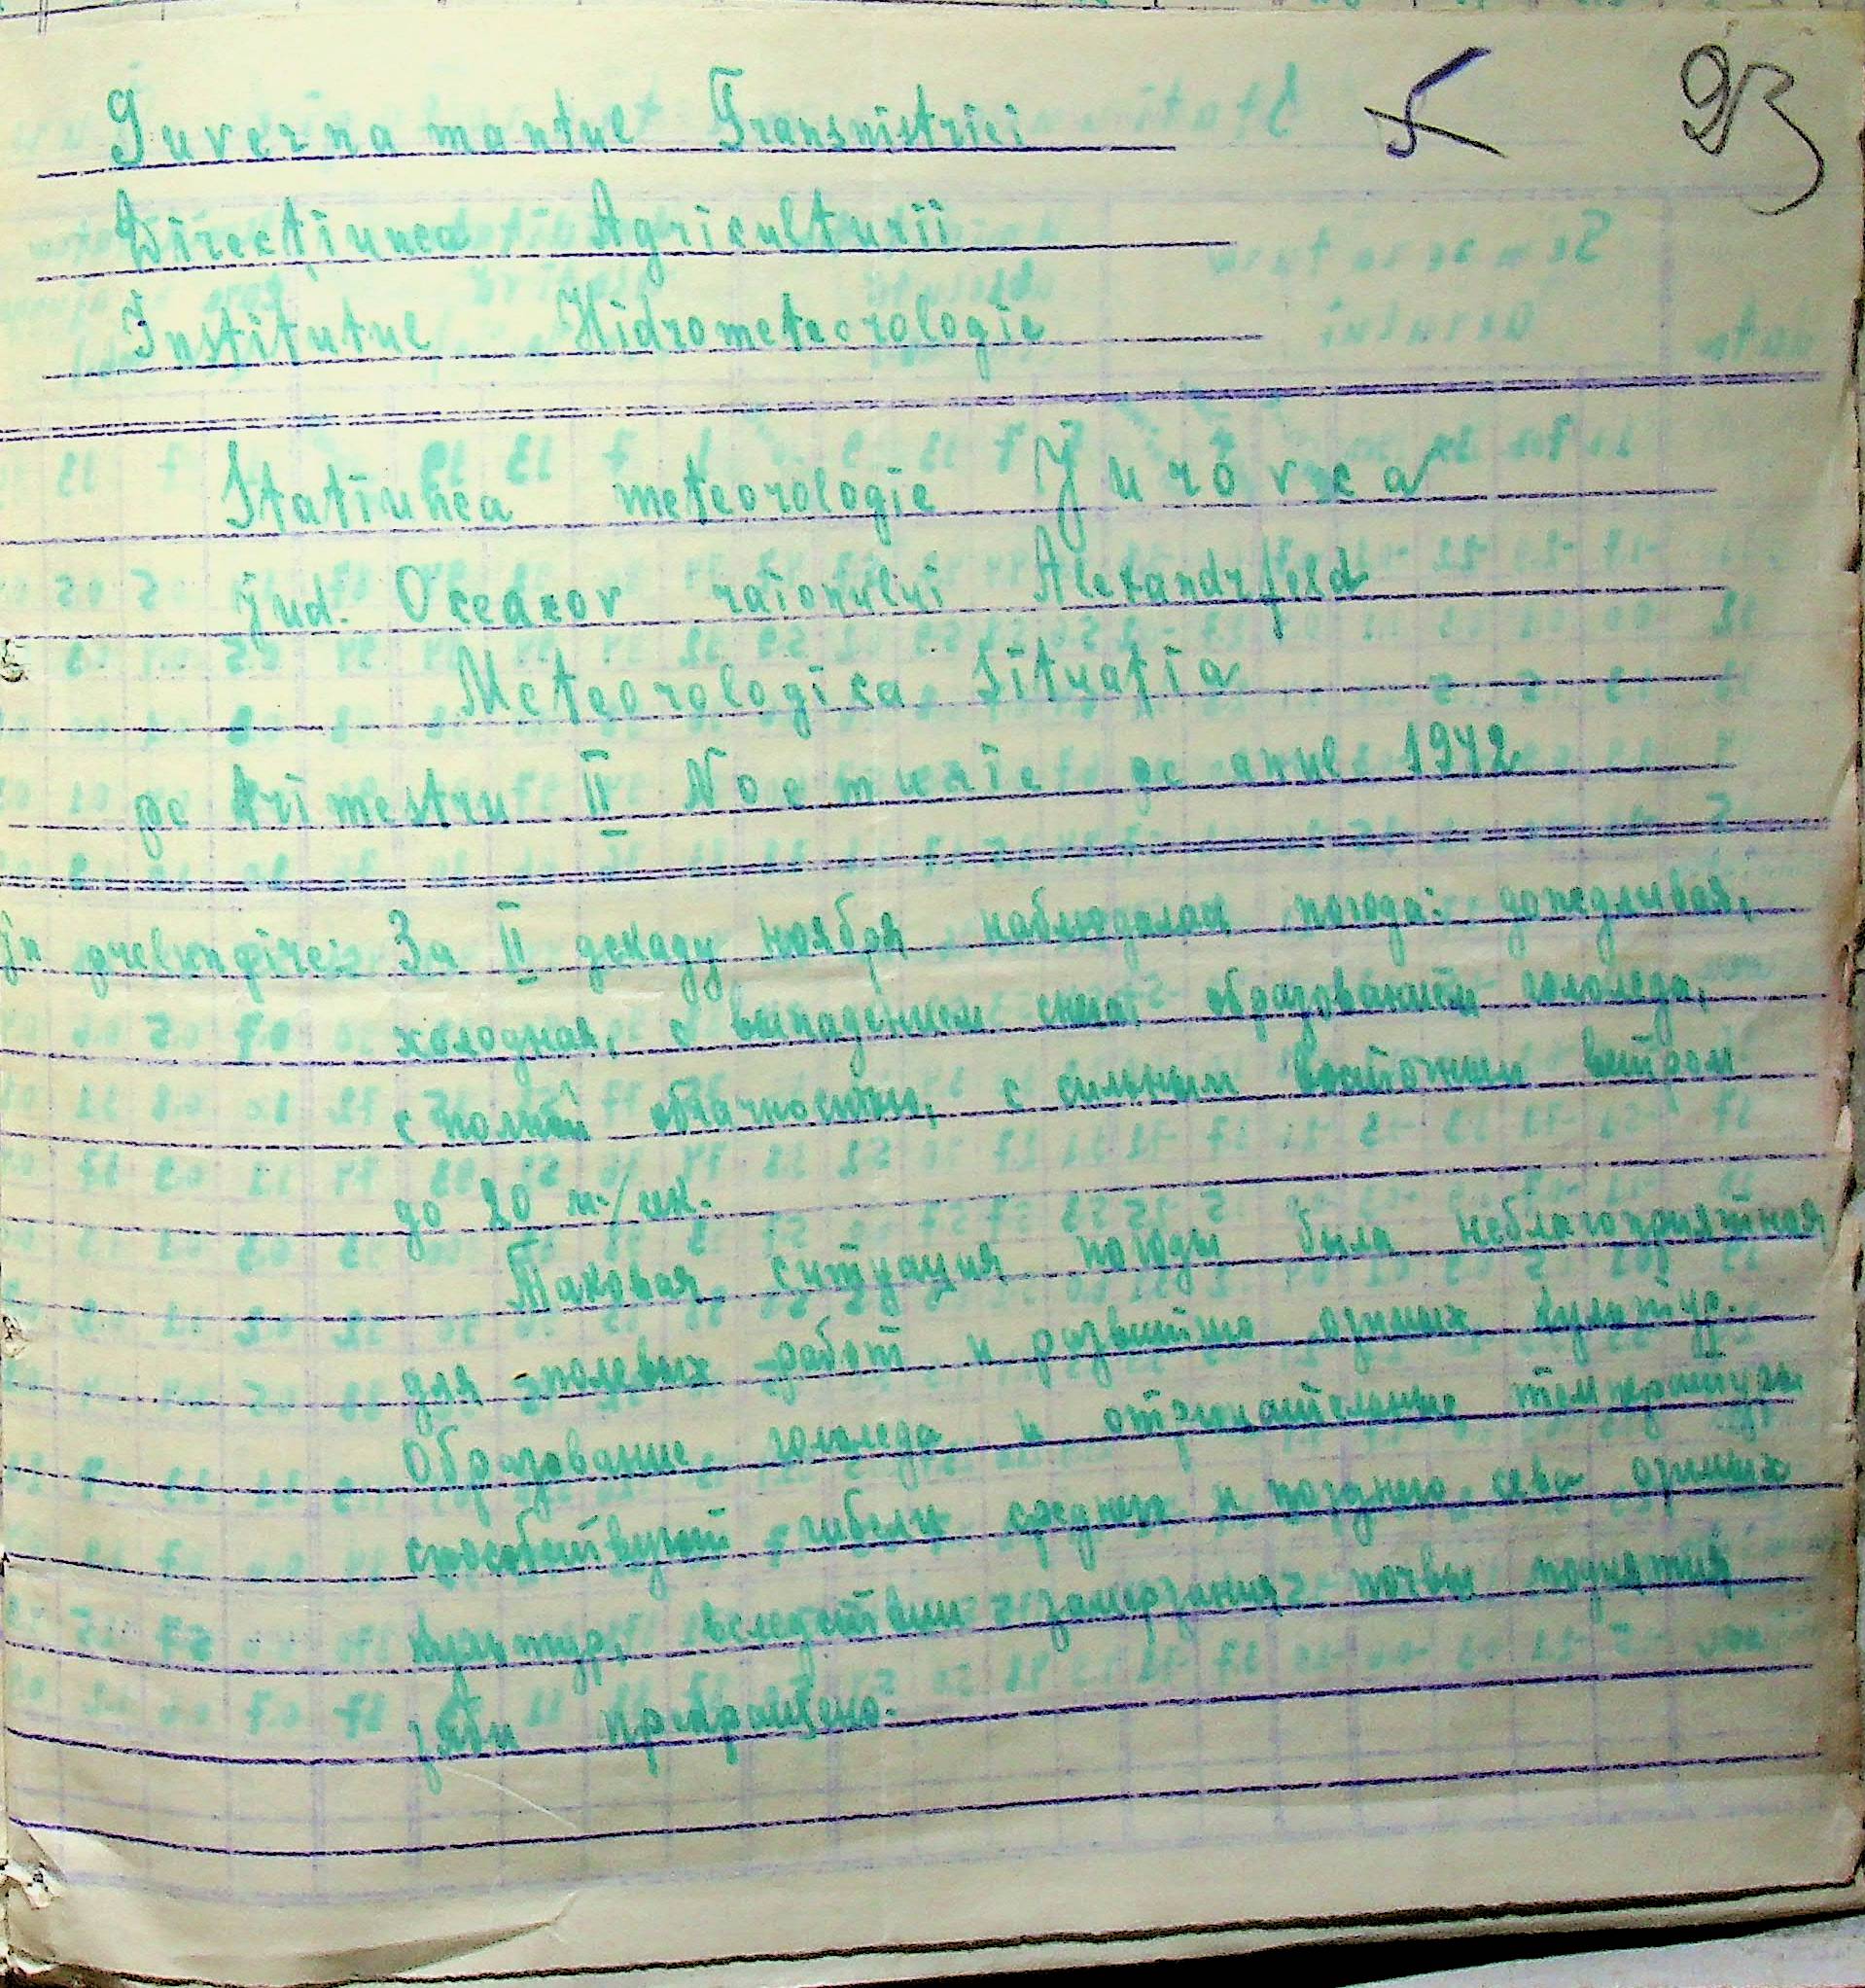 5 23
Guvernamantul Transnistriei
Direcţiunea Agriculturii
Institutul Hidrometeorologic
Staţiunea meteorologic Jurovca
jud. Oceacov raionului Alexandrfeld
Meteorologica Situaţia
pe trimestru II Noemvrie pe anul 1942
За II декаду ноября наблюдалась погода: дождливая,
холодная, с выпадением снега, образованием гололеда,
с полной облачностью, с сильным восточным ветром
до 20 м/сек.
Таковая ситуация погоды была неблагоприятная
для полевых работ и развитию озимых культур.
Образование гололеда и отрицательные температуры
способствуют гибели среднего и позднего сева озимых
культур, вследствии замерзания почвы поднятия
зяби прекращено.